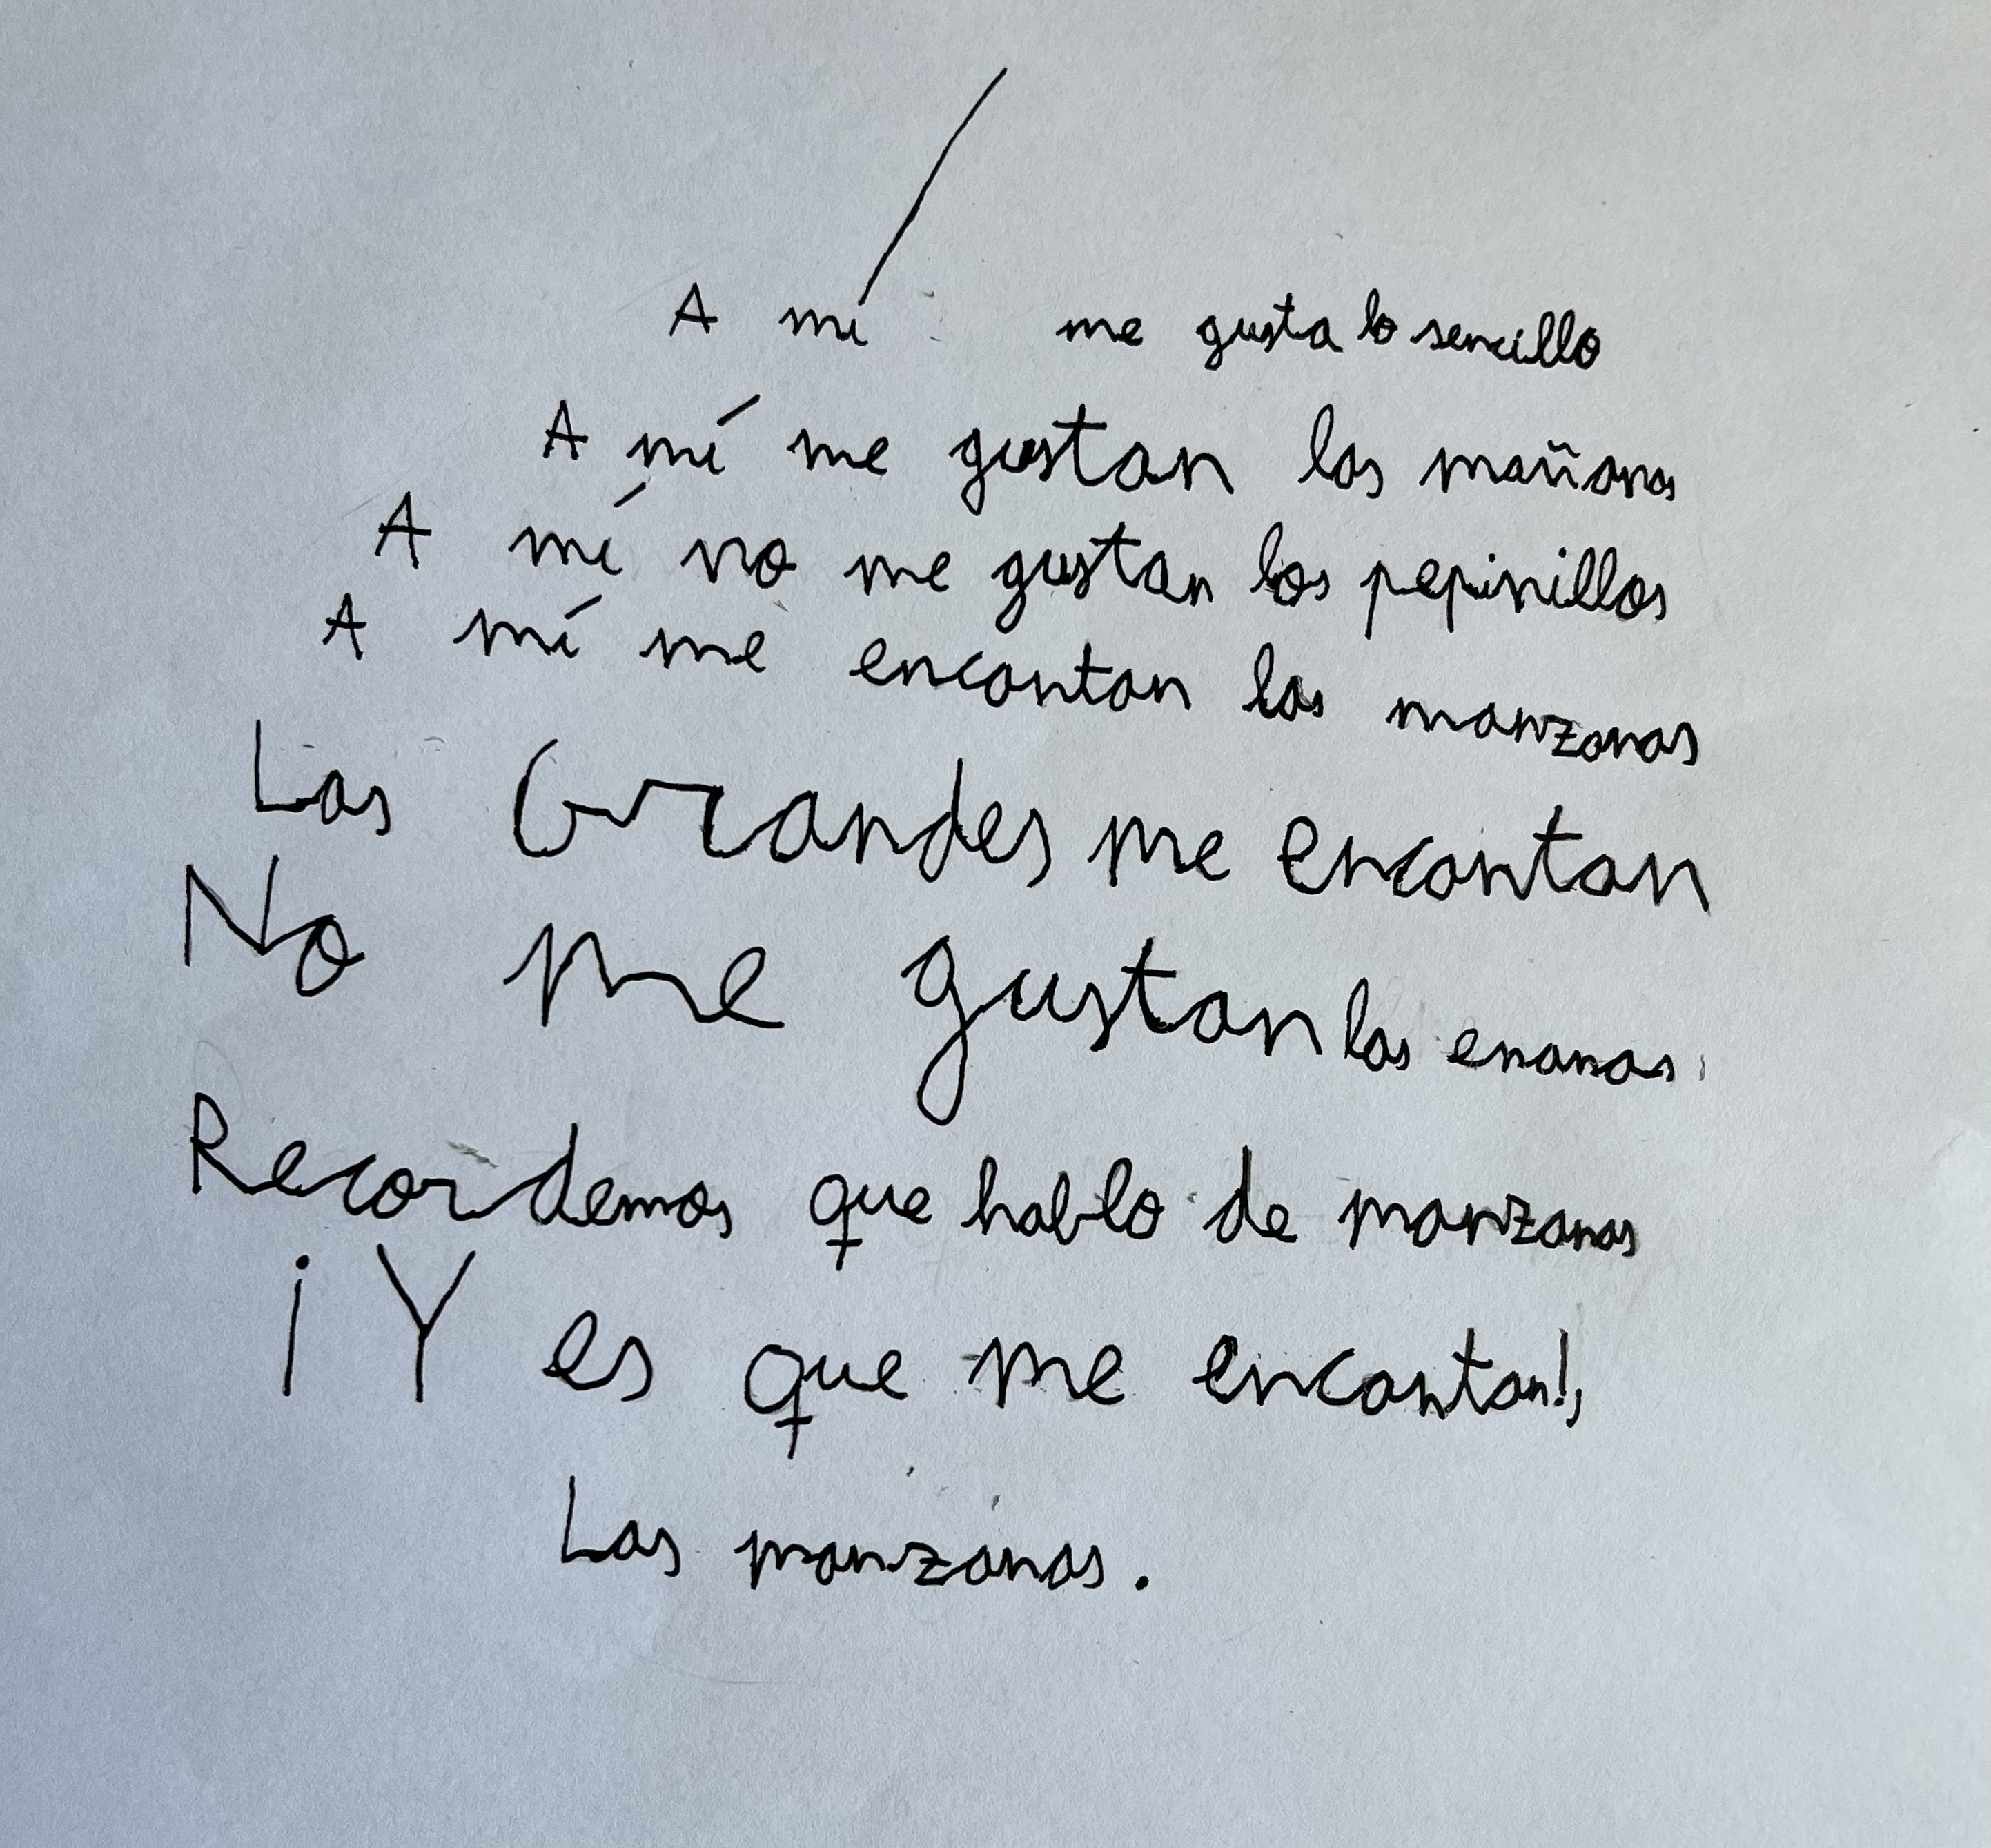 A mí me gusta lo sencillo
A mí me gustan las mañanas
A mí no me gustan los pepinillos
A mí me encantan las manzanas
Las Grandes me encantan
No me gustan las enanas
Recordemos que hablo de manzanas
¡Y es que me encantan!,
Las manzanas.